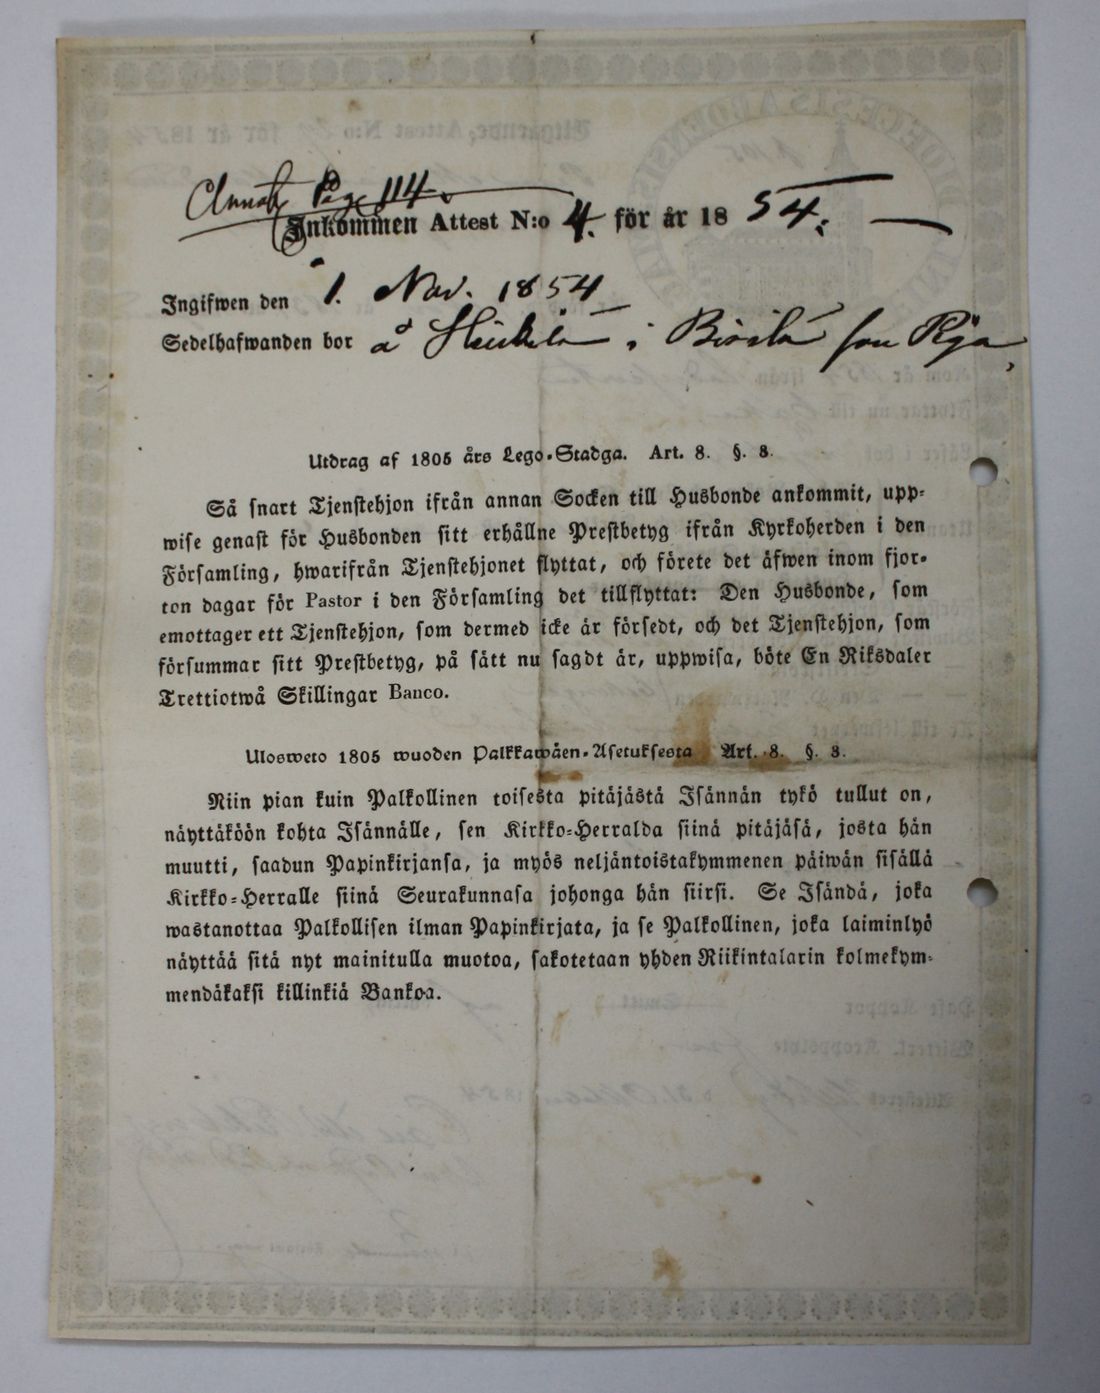 Annot. Pag. 114.
Inkommen Attest N:o 4. för år 1854.
Ingifwen den 1. Nov. 1854
Sedelhafwanden bor å i
Utdrag af 1805 års Lego-Stadga. Art. 8. §. 8.
Så snart Tjenstehjon ifrån annan Socken till Husbonde ankommit, upp-
wise genast för Husbonden sitt erhållne Prestbetyg ifrån Kyrkoherden i den
Församling, hwarifrån Tjenstehjonet flyttat, och förete det äfwen inom fjor-
ton dagar för Pastor i den Församling det tillflyttat: Den Husbonde, som
emottager ett Tjenstehjon, som dermed icke är försedt, och det Tjenstehjon, som
försummar sitt Prestbetyg, på sätt nu sagdt är, uppwisa, böte En Riksdaler
Trettiotwå Skillingar Banco.
Ulosweto 1805 wuoden Palkkawäen-Asetuksesta Art. 8. §. 8.
Niin pian kuin Palkollinen toisesta pitäjästä Isännän tykö tullut on,
näyttäköön kohta Isännälle, sen Kirkko-Herralda siinä pitäjäsä, josta hän
muutti, saadun Papinkirjansa, ja myös neljäntoistakymmenen päiwän sisällä
Kirkko-Herralle siinä Seurakunnasa johonga hän siirsi. Se Isändä, joka
wastanottaa Palkollisen ilman Papinkirjata, ja se Palkollinen, joka laiminlyö
näyttää sitä nyt mainitulla muotoa, sakotetaan yhden Riikintalarin kolmekym-
mendäkaksi killinkiä Bankoa.